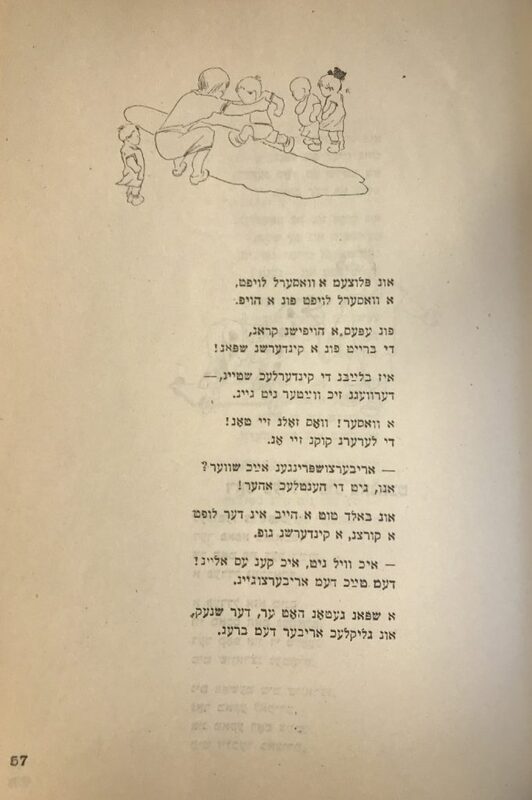 אונ פלוצעמ א וואסערל לויפט,
א וואסערל לויפט פונ א הויפ.
פונ עפעס,א הויפישנ קראנ,
די ברייט פונ א קינדערשנ שפאנ!
איז בלײַבנ די קינדערלעכ שטיינ,—
דערוועגנ זיכ ווײַטער ניט גיינ.
א וואסער! וואָס זאָלנ זיי טאָנ!
די לערערנ קוקנ זיי אָנ.
— אריבערצושפרינגענ אײַכ שווער?
אנו, גיט די הענטלעכ אהער!
אונ באלד טוט א הייב אינ דער לופט
א קורצנ, א קינדערשנ גופ.
— איכ וויל ניט, איכ קענ עס אליינ!
דעמ טײַכ דעמ אריבערצוגיינ.
א שפאנ געטאָנ האָט ער, דער שנעק,
אונ גליקלעכ אריבער דעמ ברעג.
57